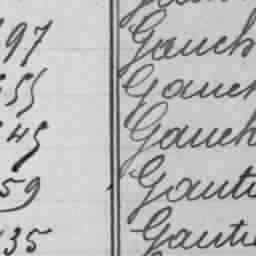 97 Gauch
55 Gauch
45 Gauch
59 Gauti
35 Gauti